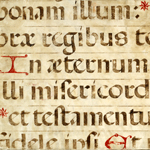 bonam illum: *
bræ regibus te
In æternum
lli misericord
* et testamentu
fidele ipsi Et